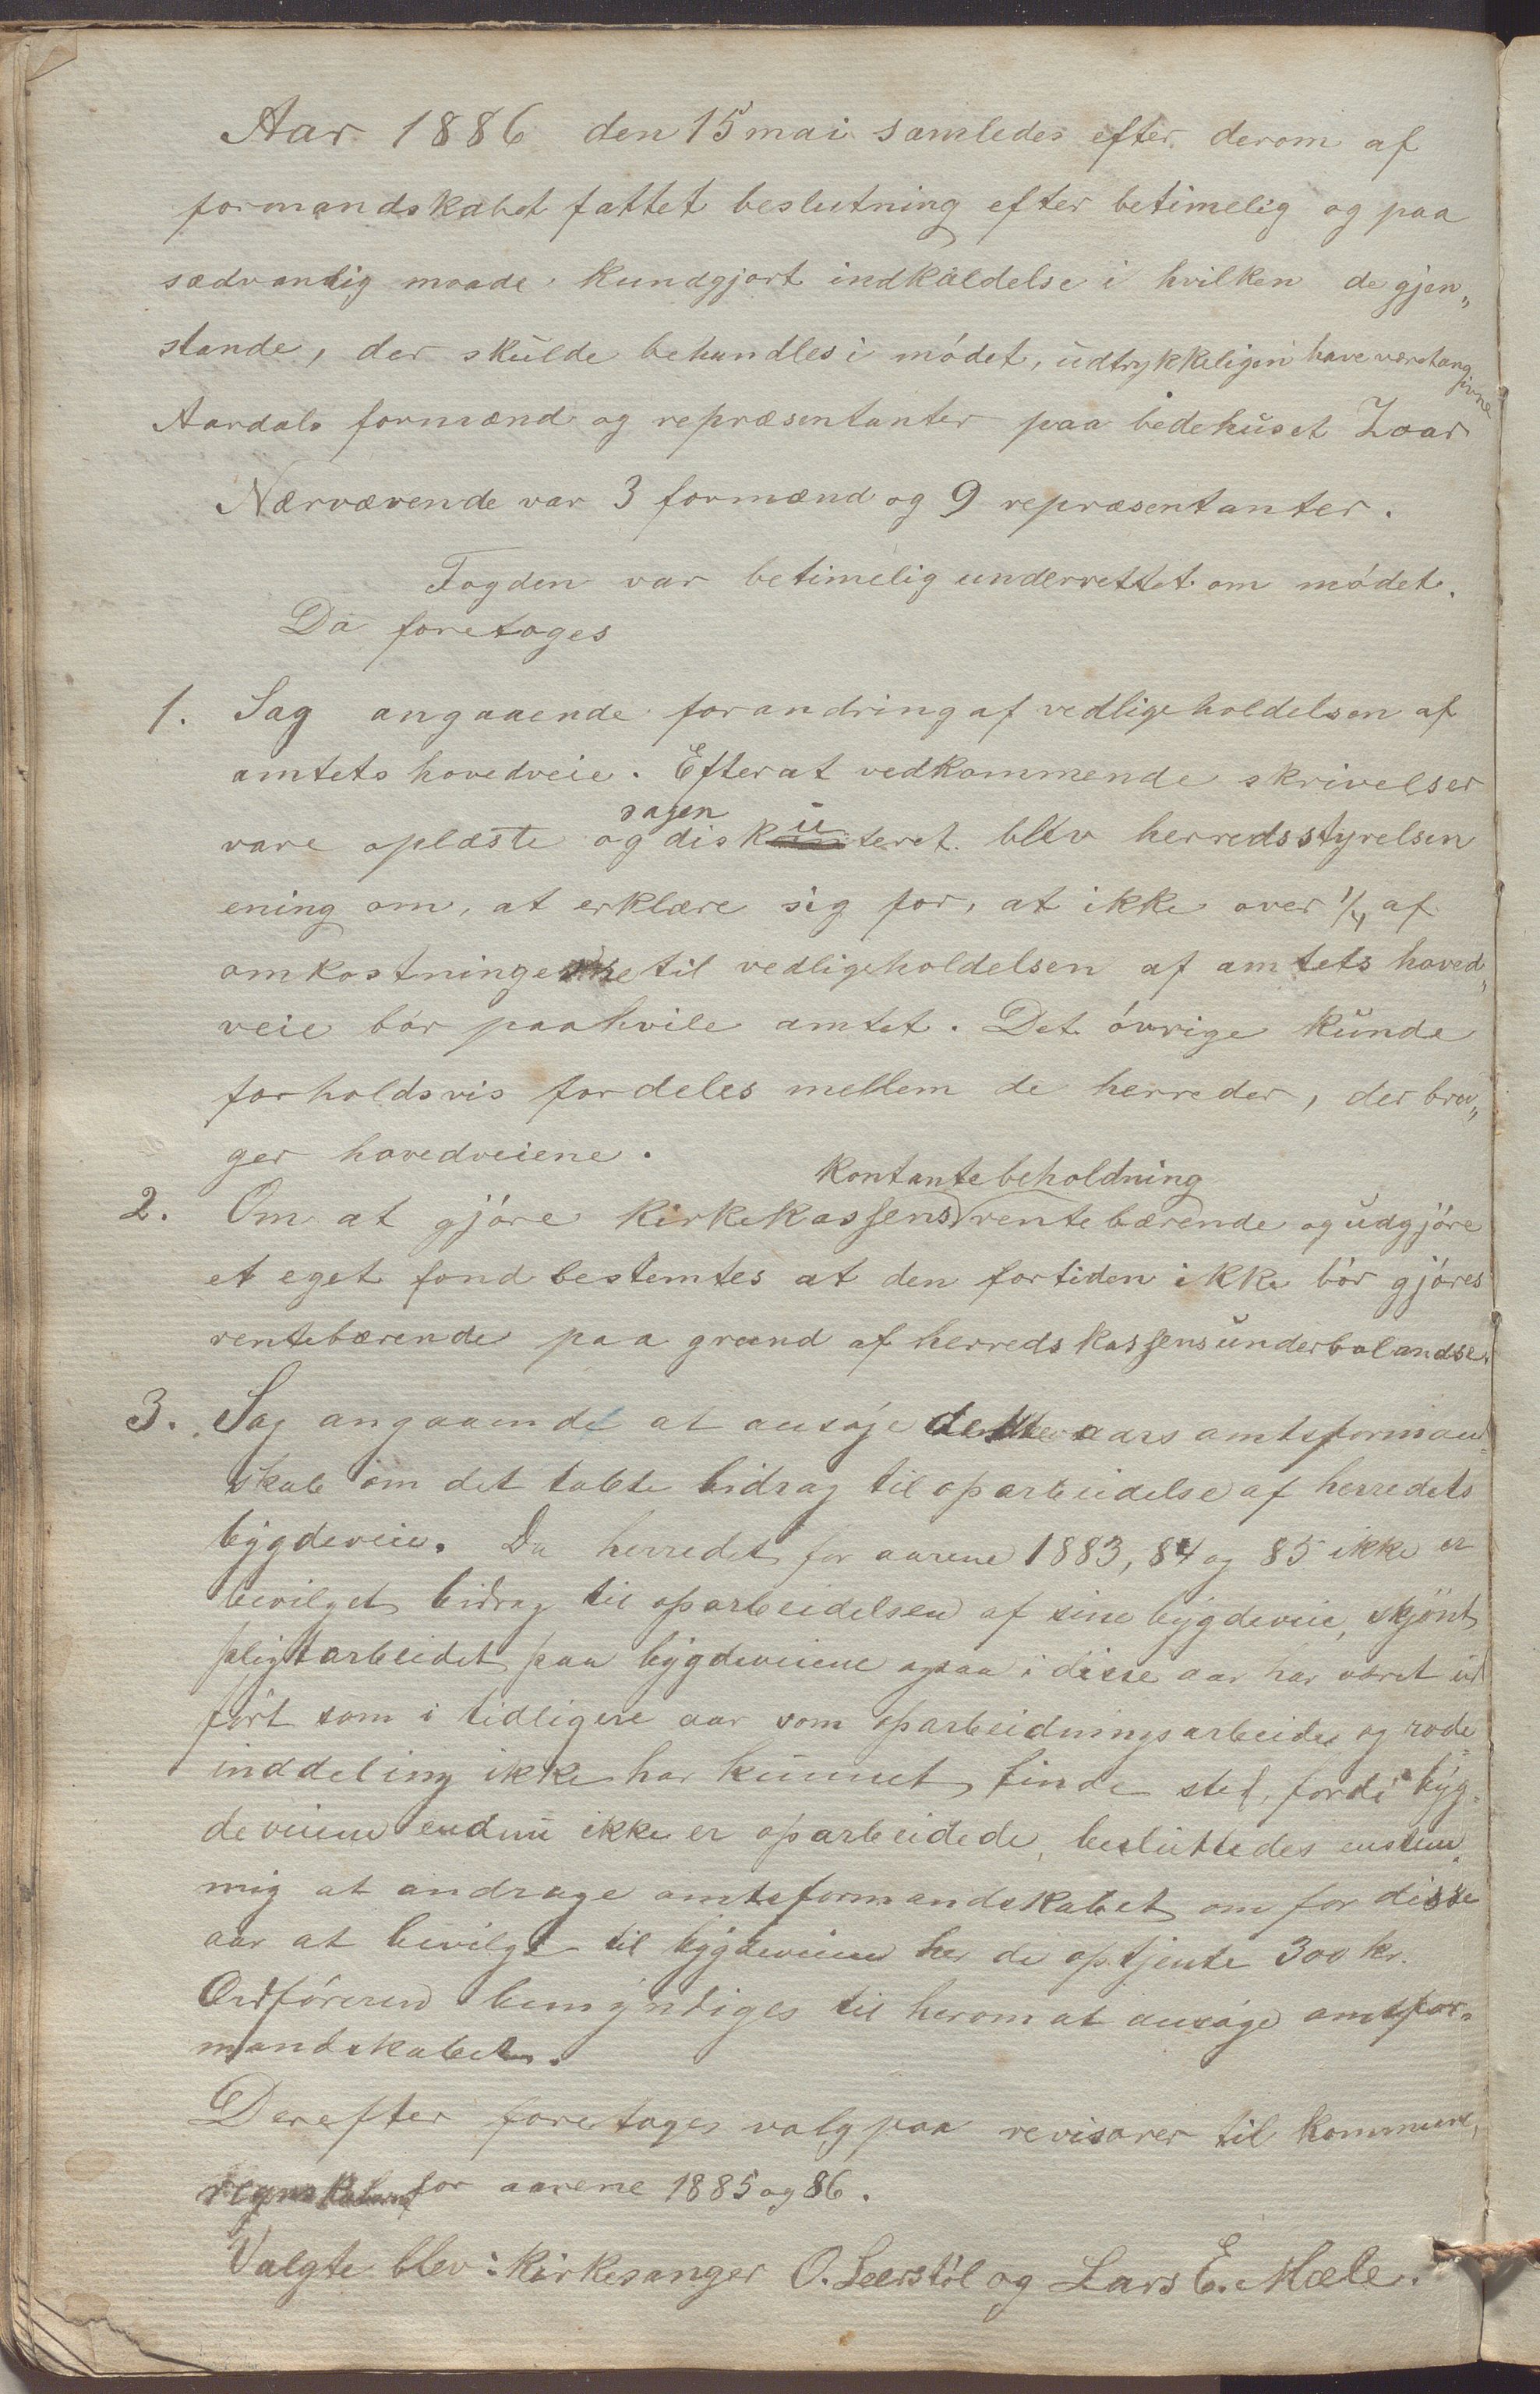 Aar 1886 den 15 mai samledes efter derom af
formandskabet fattet beslutning efter betimelig og paa
sædvanlig maade kundgjort indkaldelse i hvilken de gjen„
stande, der skulde behandles i mödet, udtrykkeligen have været angivne
Aardals formænd og repræsentanter paa bedehuset Zoar
Nærværende var 3 formænd og 9 repræsentanter.
Fogden var betimelig underrettet om mödet.
Da foretoges
1. Sag angaaende forandring af vedligeholdelsen af
amtets hovedveie. Efterat vedkommende skrivelser
vare oplæste og sagen diskuteret blev herredsstyrelsen
ening om, at erklære sig for, at ikke over 1/4 af
omkostningerne til vedligeholdelsen af amtets hoved„
veie bör paahvile amtet. Det övrige kunde
forholdsvis fordeles mellem de herreder, der bru„
ger hovedveiene.
2. Om at gjöre kirkekassens kontantebeholdning rentebærende og udgjöre
et eget fond bestemtes at den fortiden ikke bör gjöres
rentebærende paa grund af herredskassens underbalandse.
3. Sag angaaende at ansöge dette aars amtsforman„
skab om det tabte bidrag til oparbeidelse af herredets
bygdeveie. Da herredet for aarene 1883, 84 og 85 ikke er
bevilget bidrag til oparbeidelsen af sine bygdeveie, skjönt
pligtarbeidet paa bygdeveiene ogsaa i disse aar har været ud
fört som i tidligere aar som oparbeidningsarbeide og rode„
inddeling ikke har kunnet finde sted, fordi byg„
deveiene endnu ikke er oparbeidede, besluttedes enstem„
mig at andrage amtsformandskabet om for disse
aar at bevilge til bygdeveiene her de optjente 300 kr.
Ordföreren bemyndiges til herom at ansöge amtsfor„
mandskabet.
Derefter foretoges valg paa revisorer til kommune„
regnskabern for aarene 1885 og 86.
Valgte blev: Kirkesanger O. Leerstöl og Lars E. Mæle.